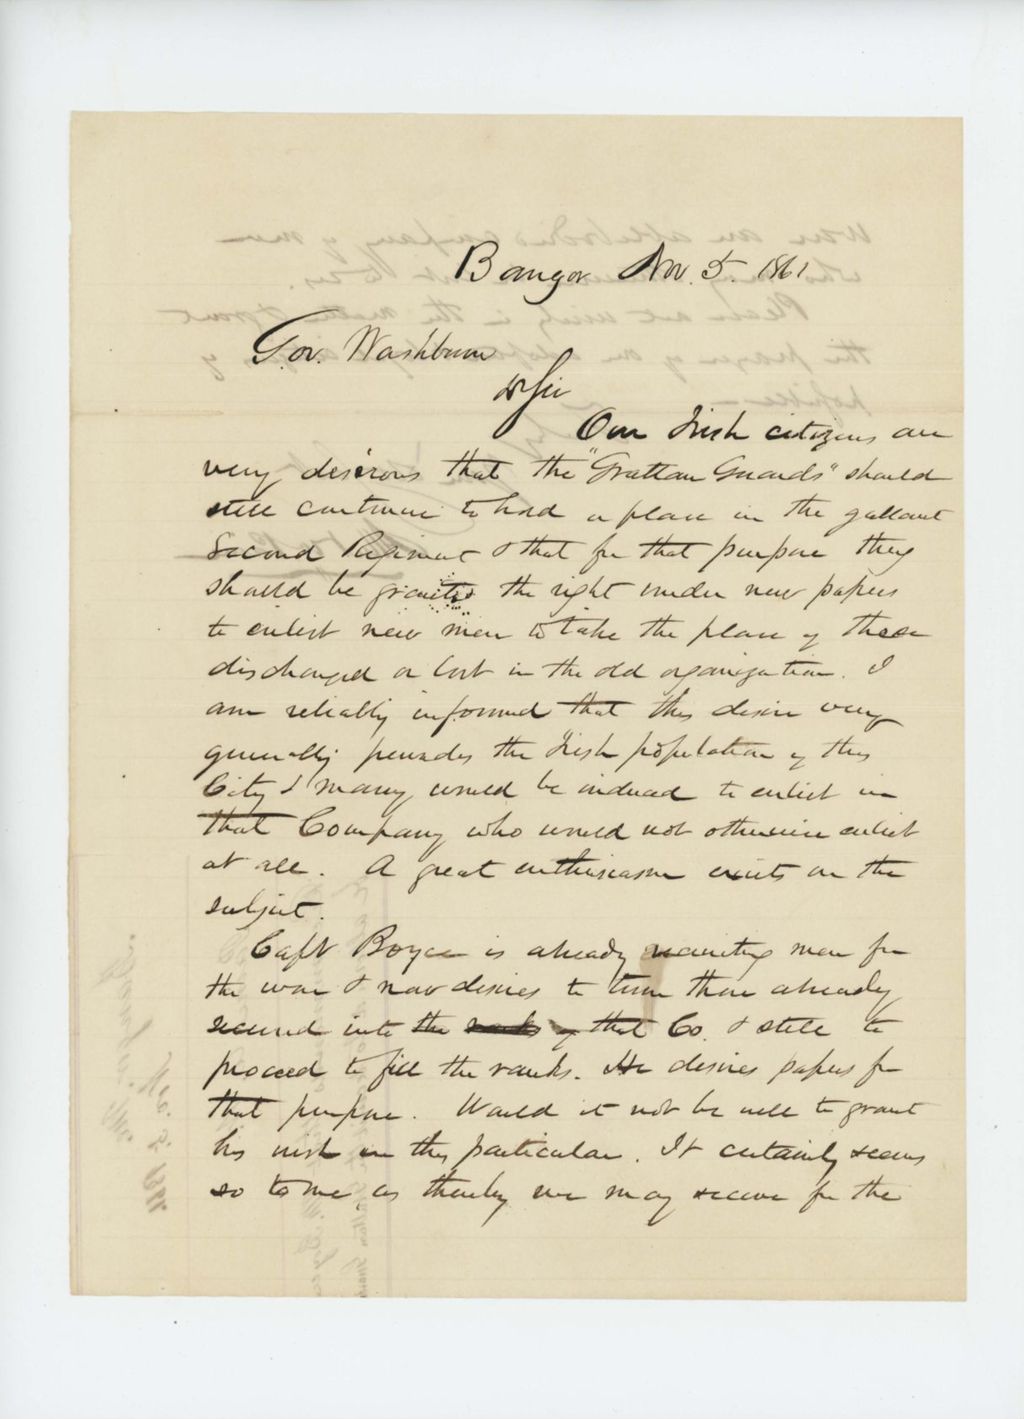 Bangor Nov. 5. 1861
Gov. Washburn
Dr Sir
Our Irish citizens are
very desirous that the "Grattan Guards" should
still continue to hold a place in the gallant
Second Regiment & that for that purpose they
should be granted the right under new papers
to enlist new men to take the place of those
discharged or lost in the old organization. I
am reliably informed that this desire very
generally pervades the Irish population of this
City & many would be induced to enlist in
that Company who would not otherwise enlist
at all. A great enthusiasm exists on the
subject.
Capt Boyce is already recruiting men for
the war & now desires to turn those already
secured into the ranks of that Co. & still to
proceed to fill the ranks. He desires papers for
that purpose. Would it not be well to grant
his wish in this particular. It certainly seems
so to me as thereby we may secure for the